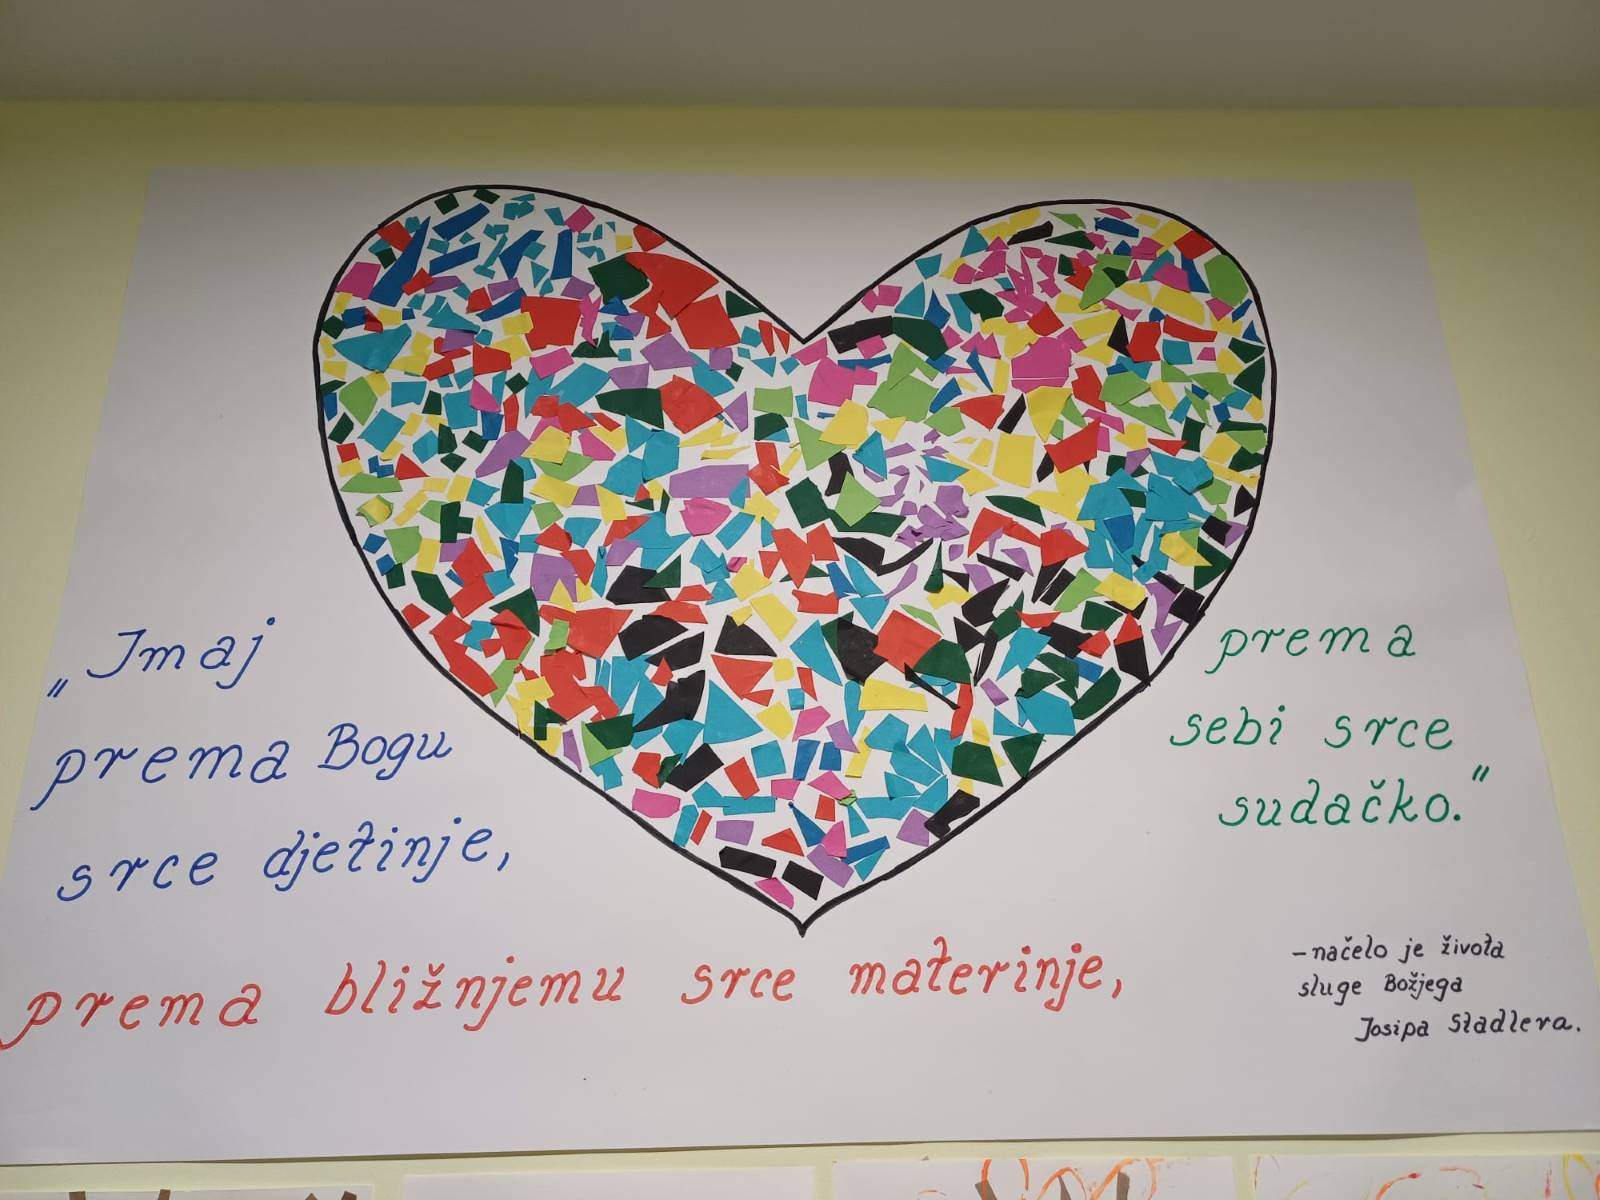 „Imaj
prema Bogu
srce djetinje,
prema bližnjemu srce materinje,
prema
sebi srce
sudačko."
-načelo je života
sluge Božjega
Josipa Stadlera.